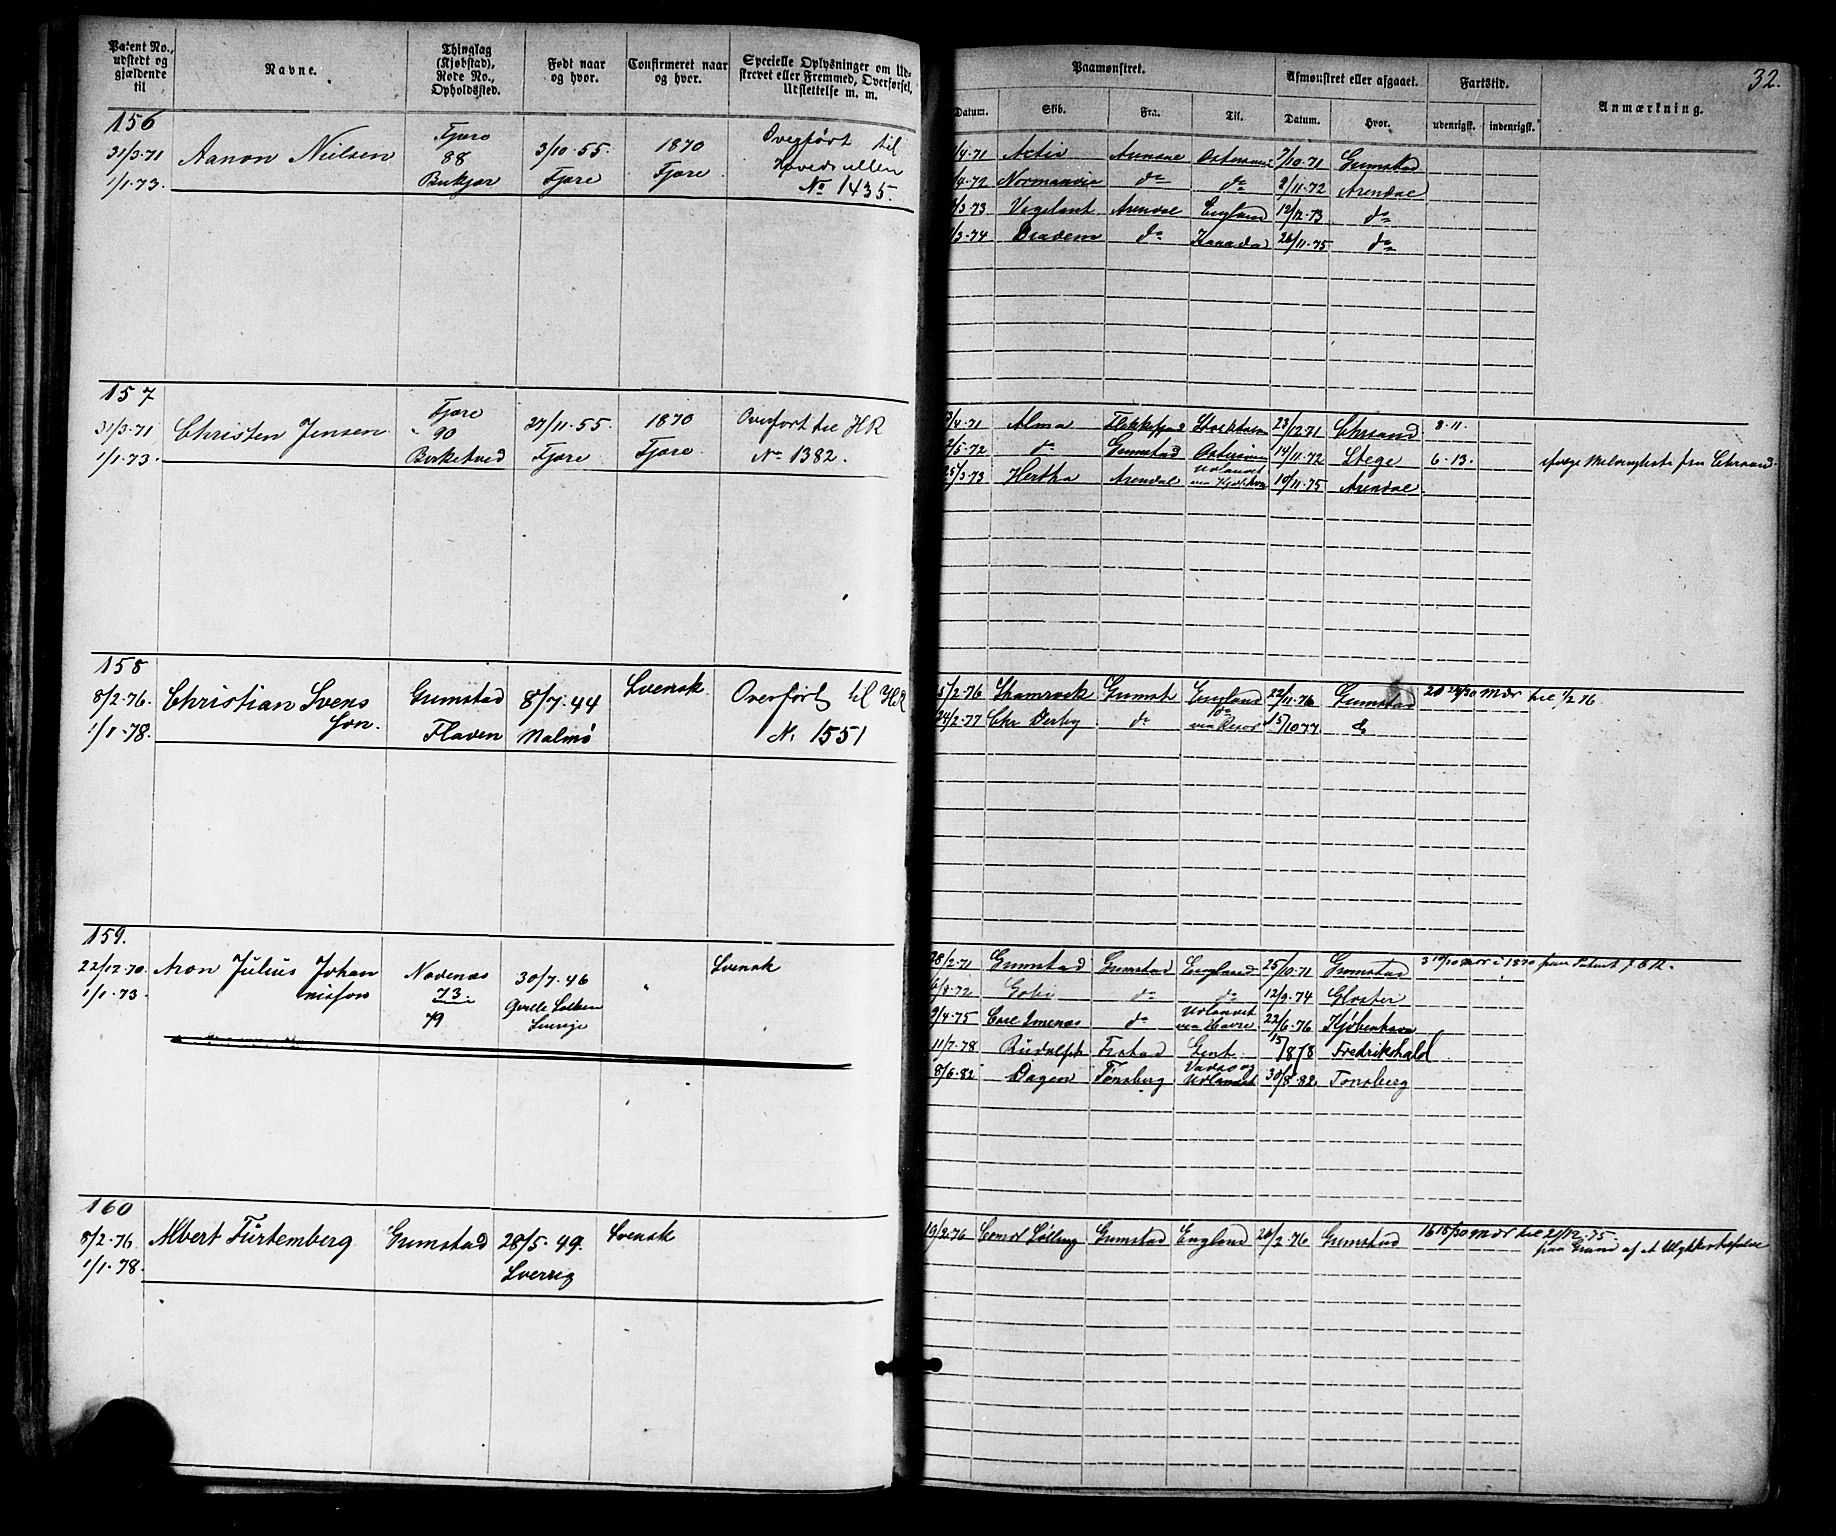 32.
Patent No., udstedt og gjældende til
Navne.
Thinglag (Kjøbstad), Rode No., Opholdssted.
Født naar og hvor.
Confirmeret naar og hvor.
Specielle Oplysninger om Udskrevet eller Fremmed, Overførsel, Udslettelse m. m.
Paamønstret.
Datum. Skib. Fra. Til.
Afmønstret eller afgaaet.
Datum. Hvor.
Fartstid.
udenrigsk. indenrigsk.
Anmærkning.
156
31/3.71 Aanon Nielsen Fjære 3/10.55. 1870 Overført til
1/1.73. 88 Fjære Fjære. Hovedrullen
Birkjær No 1435.
/4.71 Activ Arendal Østersøen 7/10.71 Grimstad
/4.72 Normandia do do 2/11.72 Arendal
/3.73 Vigelant Arendal England 12/12.73 do
/3.74 do Kanada 26/11.75 do
157
31/3.71 Christen Jensen Fjære 27/11.55. 1870 Overført til HR
1/1.73. 90 Fjære. Fjære. No 1382.
Birketved
/4.71 Alma Flekkefjord Stockholm 23/12.71 Chrsand 8.11.
2/5.72 do Grimstad Østersøen 14/11.72 Stege 6.13. ifølge fra Chrsand.
25/3.73 Hertha Arendal Udlandet via 19/11.75 Arendal
158
8/2.76. Christian Svensson. Grimstad 8/7.44 Svensk. Overført til HR
1/1.78. Flaven Malmø N. 1551
5/2.76 Shamrock Grimst England 22/11.76 Grimstad 20 29/30 Mdr til 1/2 76
24/2.77 Chr Derby do via 15/10 77 do
159.
22/12.70. Aron Julius Johannisson Navenæs 30/7.46 " Svensk
1/1.73. 73 Gefle
79 Sverige
28/2.71 Grimstad Grimstad England 25/10.71 Grimstad 3 19/30 Mdr i 1870 paa Patent f. E. R.
6/4.72 Gobi do do 12/9.74 Gloster
9/4.75 do Udlandet via Havre 22/6.76 Kjøbenhavn
11/7.78 Rudolph Fistad Gent. 15/8/8 Fredrikshald
8/6.82 Dagen Tønsberg Vadsø og Udlandet 30/8.82 Tønsberg
160
8/2.76 Albert Fürtemberg Grimstad 28/5.49. Svensk
1/1.78. Sverrig
19/2.76 Grimstad England 26/2.76 Grimstad 16 15/30 Mdr til 21/12.75
paa Grund af et Ulykkestilfælde